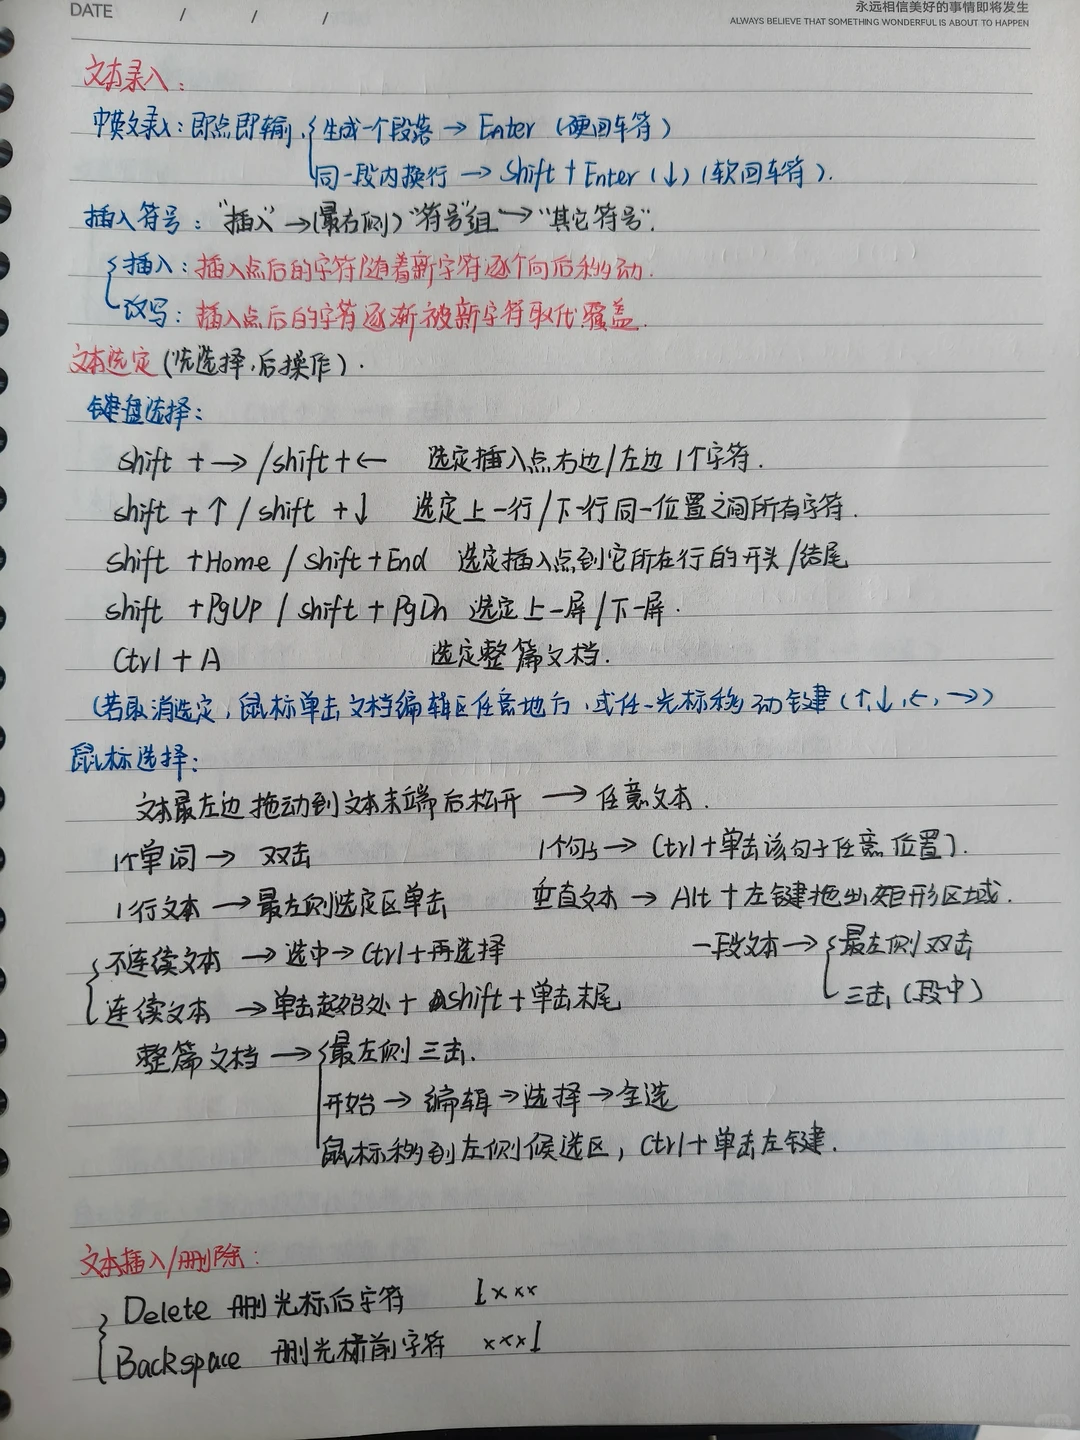 DATE / / /
永远相信美好的事情即将发生
ALWAYS BELIEVE THAT SOMETHING WONDERFUL IS ABOUT TO HAPPEN
文本录入:
中英文录入:即点即输 { 生成一个段落 → Enter (硬回车符)
同一段内换行 → Shift + Enter (↓) (软回车符).
插入符号: "插入" → (最右侧) "符号"组 → "其它符号".
{ 插入: 插入点后的字符随着新字符逐个向后移动.
改写: 插入点后的字符逐渐被新字符取代覆盖.
文本选定 (先选择,后操作).
键盘选择:
shift + → / shift + ← 选定插入点右边/左边1个字符.
shift + ↑ / shift + ↓ 选定上一行/下一行同一位置之间所有字符.
shift + Home / shift + End 选定插入点到它所在行的开头/结尾
shift + PgUp / shift + PgDn 选定上一屏/下一屏.
Ctrl + A 选定整篇文档.
(若取消选定,鼠标单击文档编辑区任意地方,或任一光标移动键 (↑,↓,←,→)
鼠标选择:
文本最左边拖动到文本末端后松开 → 任意文本.
1个单词 → 双击 1个句子 → Ctrl + 单击该句子任意位置).
1行文本 → 最左侧选定区单击 垂直文本 → Alt + 左键拖出矩形区域.
{ 不连续文本 → 选中 → Ctrl + 再选择 一段文本 → { 最左侧双击
连续文本 → 单击起始处 + shift + 单击末尾 三击 (段中)
整篇文档 → { 最左侧三击.
开始 → 编辑 → 选择 → 全选
鼠标移到左侧候选区, Ctrl + 单击左键.
文本插入/删除:
{ Delete 删光标后字符 I×××
Backspace 删光标前字符 ×××I